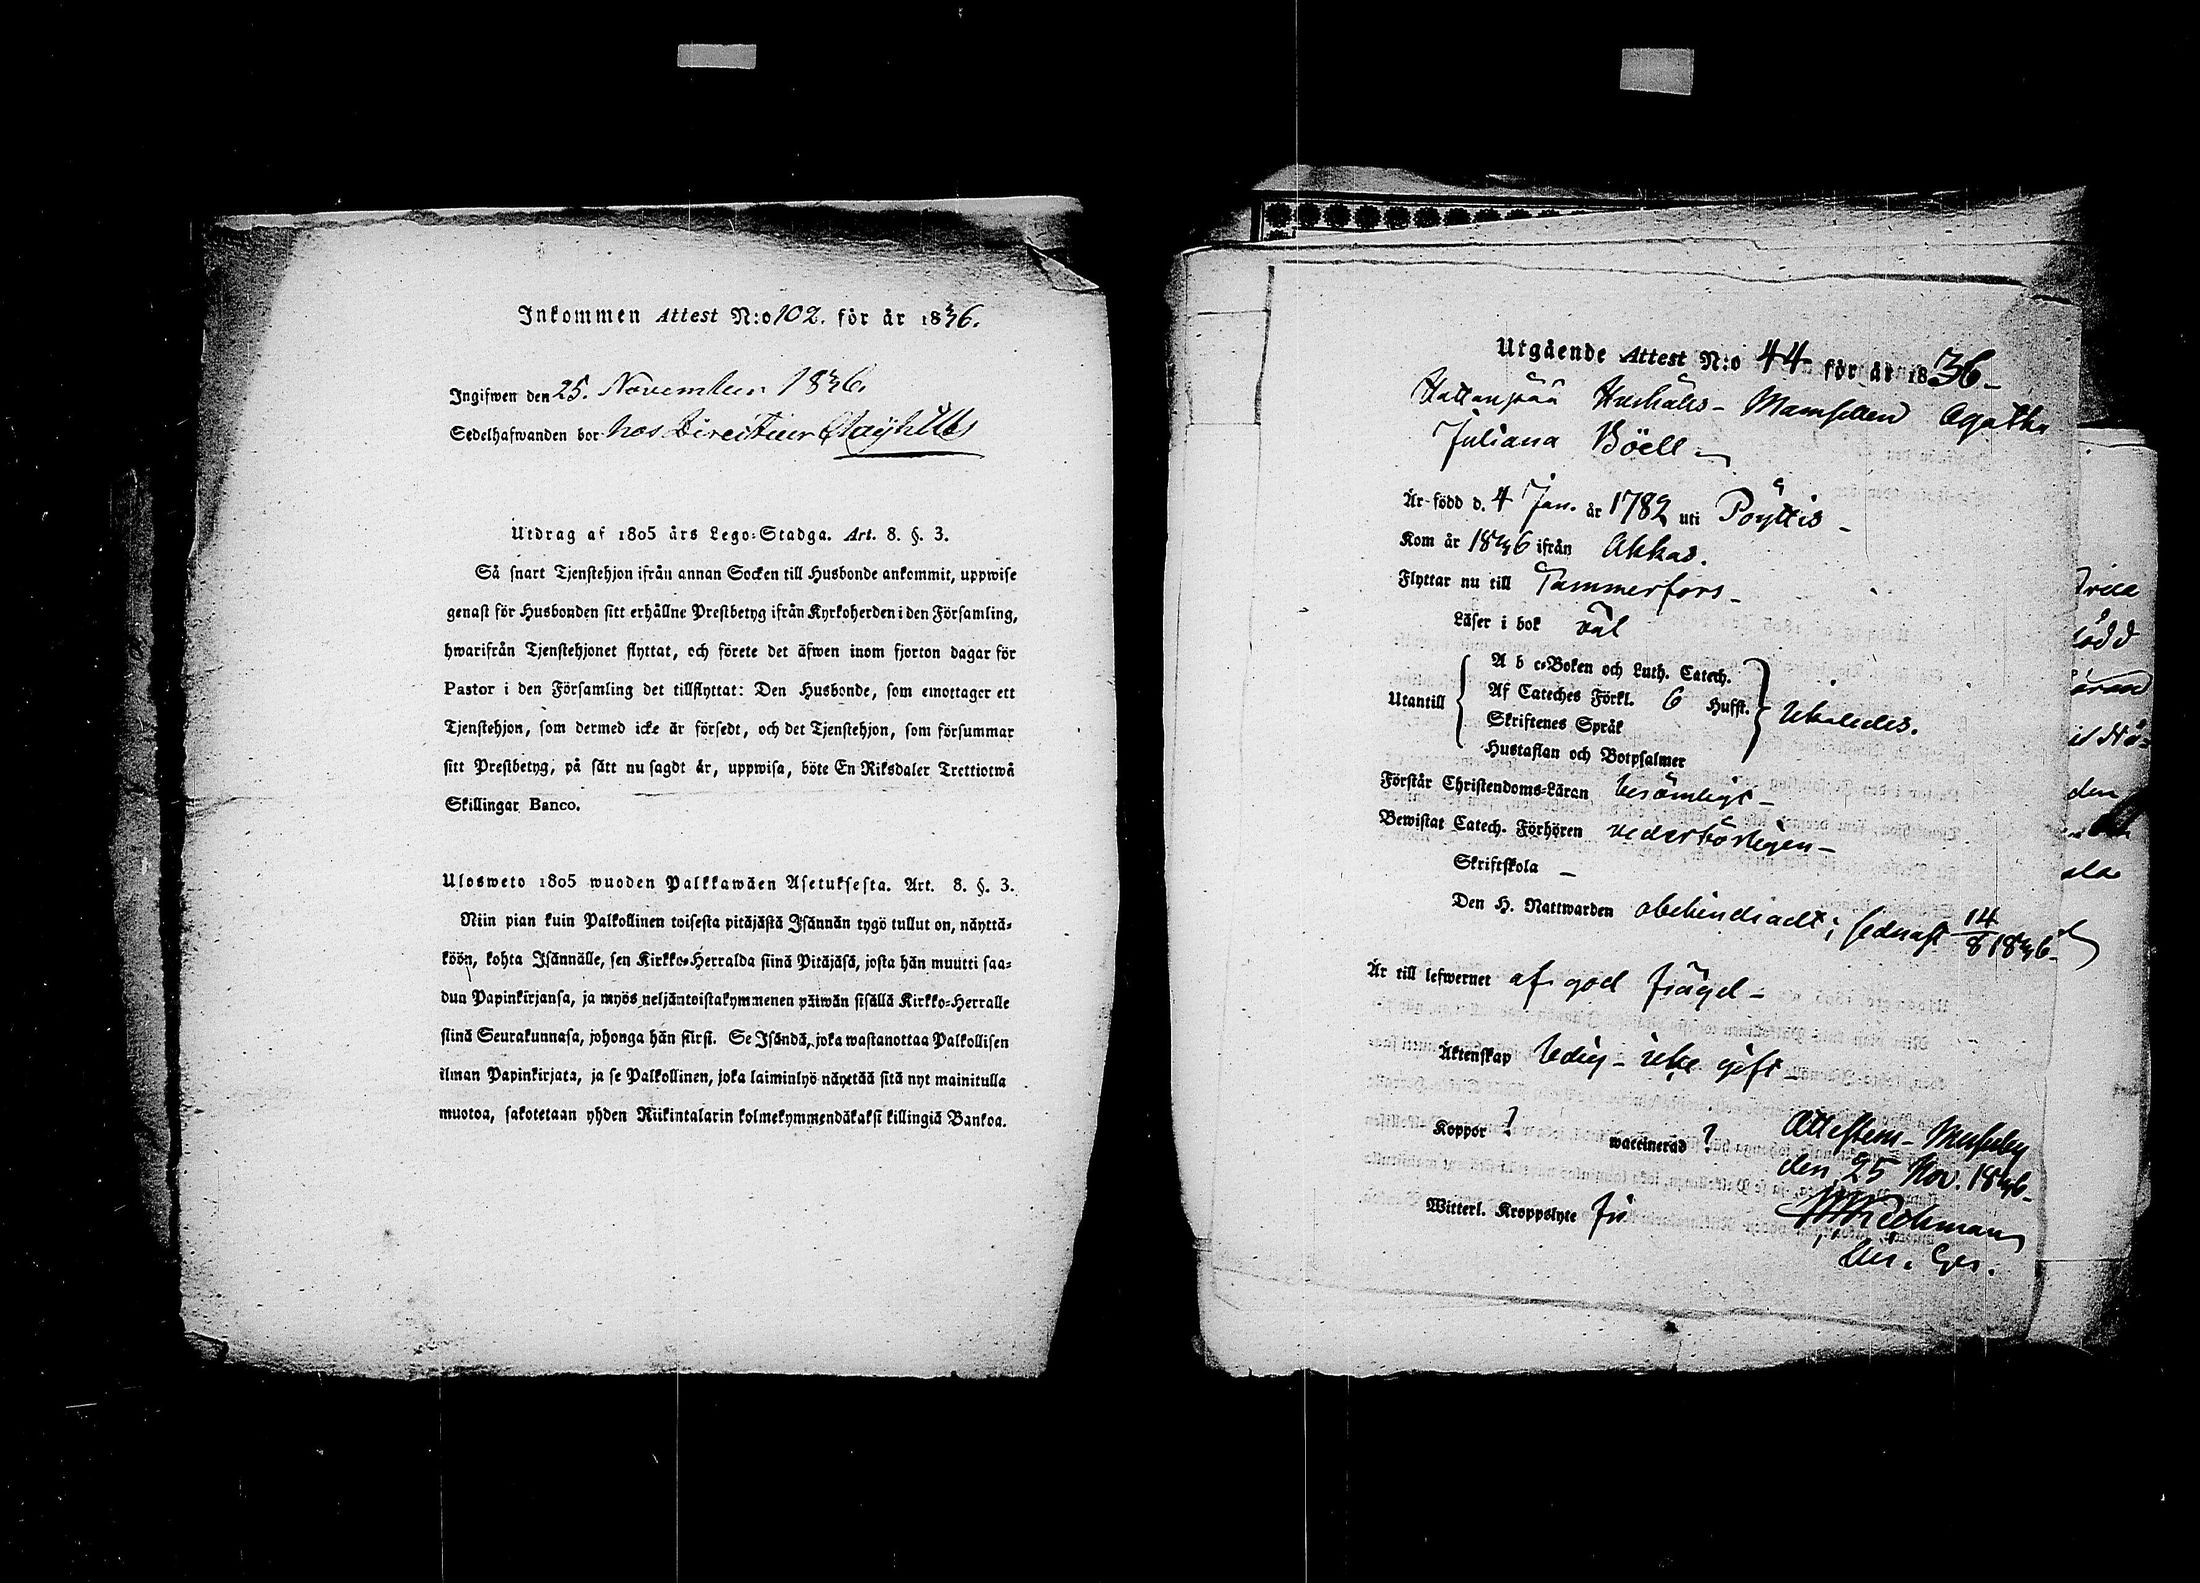 Inkommen Attest N:o 102. för år 1836.
Ingifwen den 25. November 1836.
Sedelhafwanden bor hos Directeur
Utdrag af 1805 års Lego-Stadga. Art. 8. §. 3.
Så snart Tjenstehjon ifrån annan Socken till Husbonde ankommit, uppwise
genast för Husbonden sitt erhållne Prestbetyg ifrån Kyrkoherden i den Församling,
hwarifrån Tjenstehjonet flyttat, och förete det äfwen inom fjorton dagar för
Pastor i den Församling det tillflyttat: Den Husbonde, som emottager ett
Tjenstehjon, som dermed icke är försedt, och det Tjenstehjon, som försummar
sitt Prestbetyg, på sätt nu sagdt är, uppwisa, böte En Riksdaler Trettiotwå
Skillingar Banco.
Ulosweto 1805 wuoden Palkkawäen Asetuksesta. Art. 8. §. 3.
Niin pian kuin Palkollinen toisesta pitäjästä Isännän tygö tullut on, näyttä-
köön, kohta Isännälle, sen Kirkko-Herralda siinä Pitäjäsä, josta hän muutti saa-
dun Papinkirjansa, ja myös neljäntoistakymmenen päiwän sisällä Kirkko-Herralle
siinä Seurakunnasa, johonga hän siirsi. Se Isändä, joka wastanottaa Palkollisen
ilman Papinkirjata, ja se Palkollinen, joka laiminlyö näyttää sitä nyt mainitulla
muotoa, sakotetaan yhden Riikintalarin kolmekymmendäkaksi killingiä Bankoa.
Utgående Attest N:o 44 för år 1836-
Hattanpää Hushålls- Mamsellen Agatha
Juliana Böell
Är född d. 4 Jan. år 1782 uti Pöyttis -
Kom år 1836 ifrån Akkas.
Flyttar nu till Tammerfors -
Läser i bok väl
A b c-Boken och Luth. Catech.
Utantill Af Cateches Förkl. 6 Hufst. likaledes.
Skriftenes Språk
Hustaflan och Botpsalmer
Förstår Christendoms-Läran berömligt -
Bewistat Catech. Förhören vederbörligen -
Skriftskola -
Den H. Nattwarden obehindradt; sednast 14/8 1836
Är till lefwernet af god frägd -
Äktenskap ledig - icke gift -
Koppor ? waccinerad ? Attesterar Messuby
den 25 Nov. 1836.
Witterl. Kroppslyte fri